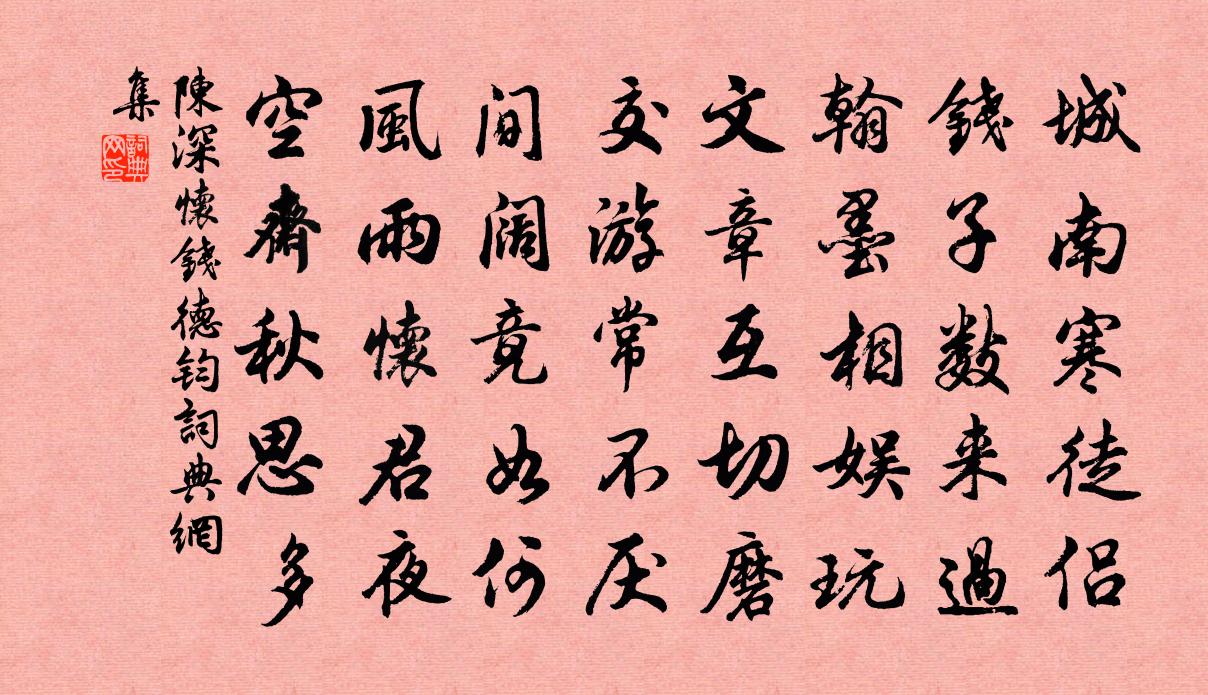 城南寒徒侣
錢子數来過
翰墨相娱玩
文章互切磨
交游常不厌
间阔竟如何
風雨懷君夜
空齋秋思多
陳深懷錢德钧詞典網
集
詞典
网印